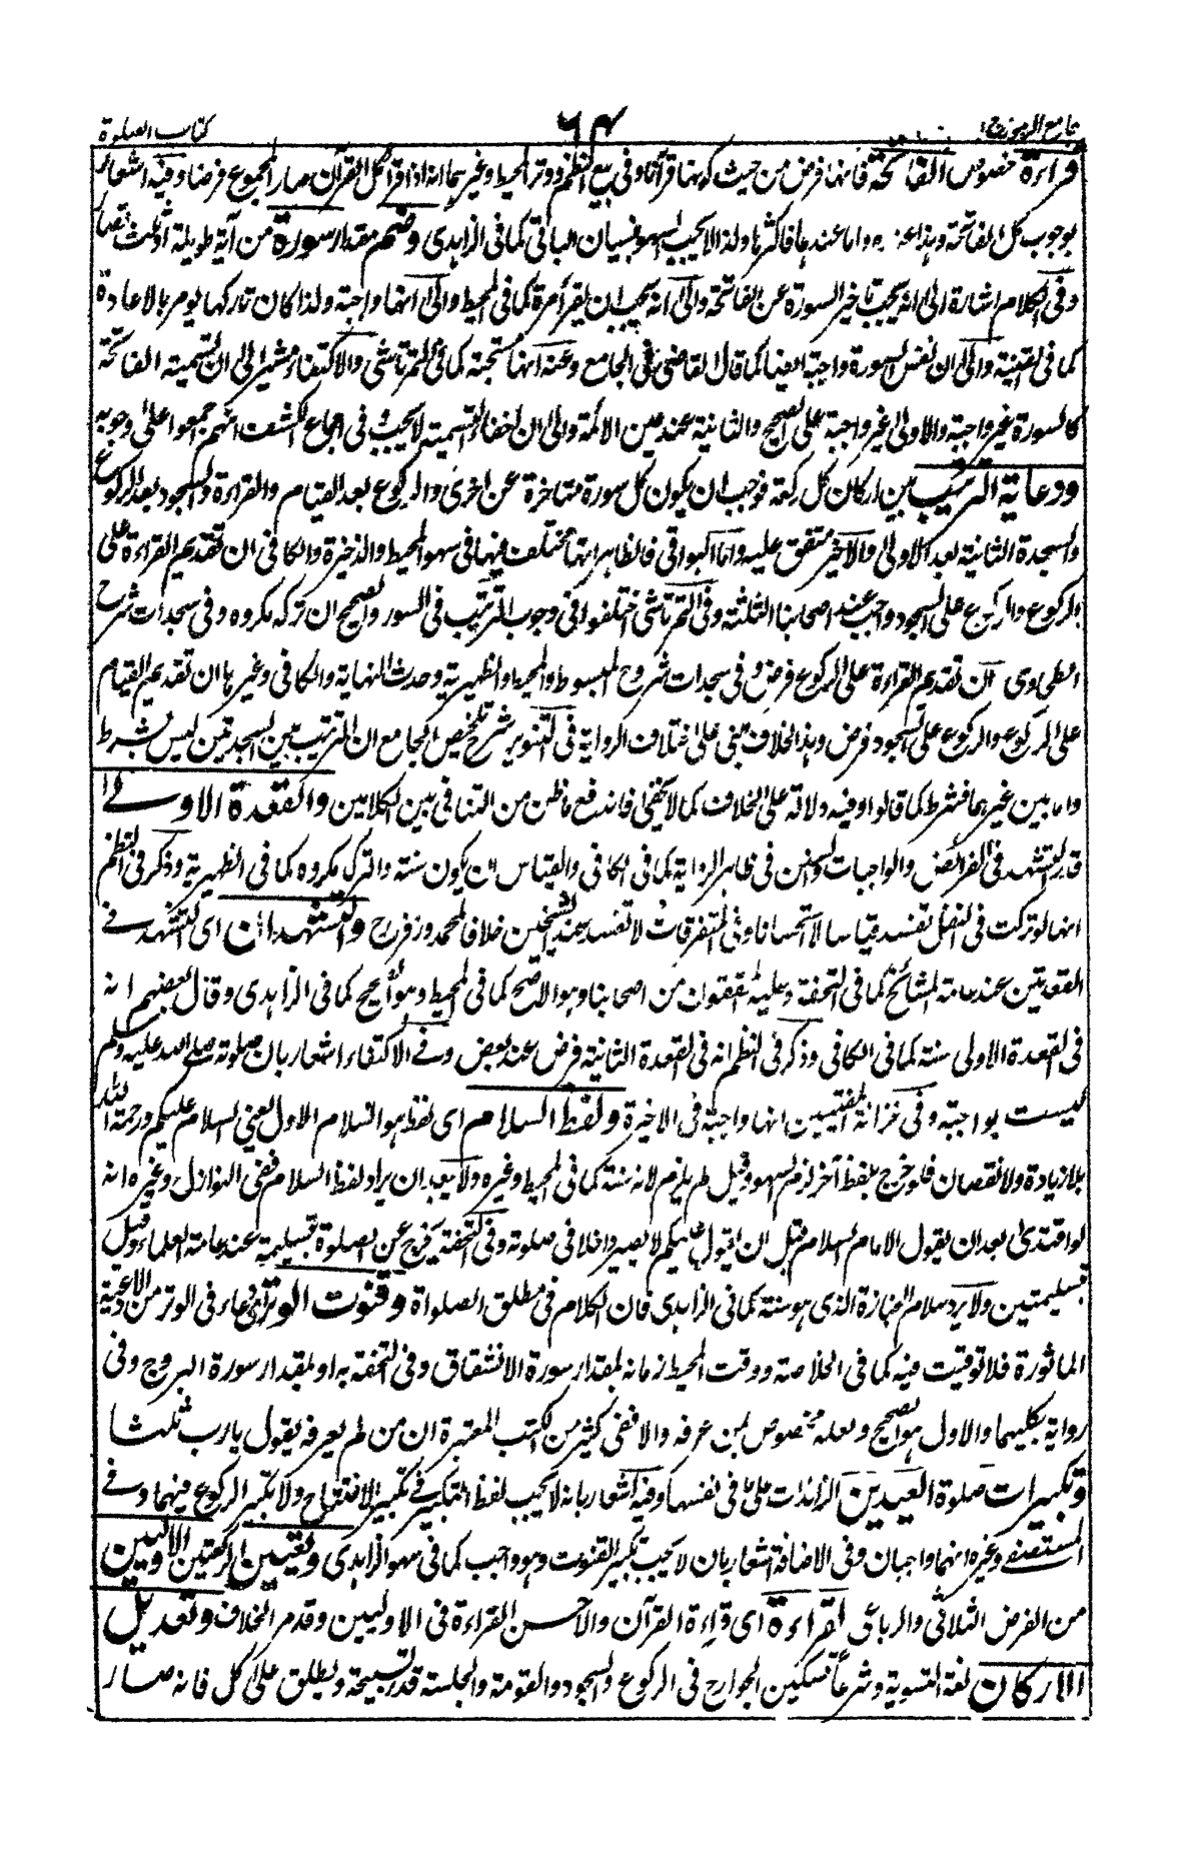 جامع الرموز ج۱ ۶۴ كتاب الصلوة
قراءة خصوص الفاتحة فانها فرض من حيث كونها قرآنا وفى بيع النظم ووتر المحيط وغيرهما انه اذا قرأ كل القرآن صار المجموع فرضا وفيه اشعار
بوجوب كل الفاتحة وهذا عنده واما عندهما فاكثرها ولذا لا يجب السهو بنسيان الباقى كما فى الزاهدى وضم مقدار سورة من آية طويلة او ثلث قصار
وفى الكلام اشارة الى انه يجب تاخير السورة عن الفاتحة والى انه يجب ان يقرأ مرة كما فى المحيط والى انها واجبة ولذا كان تاركها يومر بالاعادة
كما فى القنية والى ان نفس السورة واجبة ايضا كما قال القاضى فى الجامع وعنه انها مستحبة كما فى التمرتاشى والاكتفاء مشير الى ان تسمية الفاتحة
كالسورة غير واجبة والاولى غير واجبة على الصحيح والثانية عند عين الائمة والى ان اخفاء التسمية لا يجب فى اجماع الكشف انهم اجمعوا على وجوبه
ورعاية الترتيب بين اركان كل ركعة فوجب ان يكون كل سورة متاخرة عن اخرى والركوع بعد القيام والقراءة والسجود بعد الركوع
والسجدة الثانية بعد الاولى والاخير متفق عليه واما البواقى فالظاهر انها مختلف فيها فى سهو المحيط والذخيرة والكافى ان تقديم القراءة على
الركوع والركوع على السجود واجب عند اصحابنا الثلثة وفى التمرتاشى اختلفوا فى وجوب الترتيب فى السور والصحيح ان تركه مكروه وفى سجدات شرح
الطحاوى ان تقديم القراءة على الركوع فرض وفى سجدات شروح المبسوط والمحيط والظهيرية وحدث النهاية والكافى وغيرها ان تقديم القيام
على الركوع والركوع على السجود فرض وهذا الخلاف مبنى على اختلاف الرواية فى التنوير شرح تلخيص الجامع ان الترتيب بين السجدتين ليس بشرط
واما بين غيرهما فشرط كما قالوا وفيه دلالة على الخلاف كما لا يخفى فاندفع ما ظن من التنافى بين الكلامين والقعدة الاولى
قدر التشهد فى الفرائض والواجبات والسنن فى ظاهر الرواية كما فى الكافى والقياس ان يكون سنة والترك مكروه كما فى الظهيرية وذكر فى النظم
انها لو تركت فى النفل تفسد قياسا لا استحسانا وفى المتفرقات لا تفسد عند الشيخين خلافا لمحمد وزفر رح والتشهدان اى التشهد فى
القعدتين عند عامة المشائخ كما فى التحفة وعليه المحققون من اصحابنا وهو الاصح كما فى المحيط وهو الصحيح كما فى الزاهدى وقال بعضهم انه
فى القعدة الاولى سنة كما فى الكافى وذكر فى النظم انه فى القعدة الثانية فرض عند بعض وفى الاكتفاء اشعار بان صلوته صلى الله عليه وسلم
ليست بواجبة وفى خزانة المفتيين انها واجبة فى الاخيرة ولفظ السلام اى لفظ هو السلام الاول يعنى السلام عليكم ورحمة الله
بلا زيادة ولا نقصان فلو خرج بلفظ آخر لزم السهو وقيل لم يلزم لانه سنة كما فى المحيط وغيره ولا يبعد ان يراد لفظ السلام ففى النوازل وغيره انه
لو اقتدى بعد ان يقول الامام السلام قبل ان يقول عليكم لا يصير داخلا فى صلوته وفى التحفة يخرج عن الصلوة بتسليمة عند عامة العلماء وقيل
بتسليمتين ولا يرد سلام الجنازة الذى هو سنة كما فى الزاهدى فان الكلام فى مطلق الصلواة وقنوت الوتر اى دعاء فى الوتر من الادعية
الماثورة فلا توقيت فيه كما فى الخلاصة ووقت المحيط زمانه بمقدار سورة الانشقاق وفى التحفة به او بمقدار سورة البروج وفى
رواية بكليهما والاول هو الصحيح ولعله مخصوص بمن عرفه والا ففى كثير من الكتب المعتبرة ان من لم يعرفه يقول يا رب ثلثا
وتكبيرات صلوة العيدين الزائدات على ما فى نفسها وفيه اشعار بانه لا يجب لفظ التكبير فى تكبير الافتتاح ولا تكبير الركوع فيهما وفى
المستصفى وغيره انهما واجبان وفى الاضافة اشعار بان لا يجب تكبير القنوت وهو واجب كما فى سهو الزاهدى وتعيين الركعتين الاوليين
من الفرض الثلاثى والرباعى لقراءة اى قراءة القرآن والاحسن القراءة فى الاوليين وقد مر الخلاف وتعديل
الاركان لغة التسوية وشرعا تسكين الجوارح فى الركوع والسجود والقومة والجلسة قدر تسبيحة ويطلق على كل فانه صار